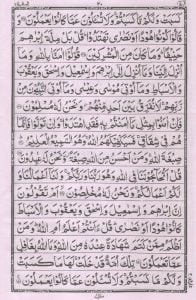 كَسَبَتْ وَلَكُمْ مَّا كَسَبْتُمْ وَلَا تُسْـَٔلُوْنَ عَمَّا كَانُوْا يَعْمَلُوْنَ
وَقَالُوْا كُوْنُوْا هُوْدًا اَوْ نَصٰرٰى تَهْتَدُوْا قُلْ بَلْ مِلَّةَ اِبْرٰهٖمَ
حَنِيْفًا وَمَا كَانَ مِنَ الْمُشْرِكِيْنَ قُوْلُوْٓا اٰمَنَّا بِاللّٰهِ وَمَآ
اُنْزِلَ اِلَيْنَا وَمَآ اُنْزِلَ اِلٰٓى اِبْرٰهٖمَ وَاِسْمٰعِيْلَ وَاِسْحٰقَ وَيَعْقُوْبَ
وَالْاَسْبَاطِ وَمَآ اُوْتِيَ مُوْسٰى وَعِيْسٰى وَمَآ اُوْتِيَ النَّبِيُّوْنَ مِنْ
رَّبِّهِمْ لَا نُفَرِّقُ بَيْنَ اَحَدٍ مِّنْهُمْ وَنَحْنُ لَهٗ مُسْلِمُوْنَ
فَاِنْ اٰمَنُوْا بِمِثْلِ مَآ اٰمَنْتُمْ بِهٖ فَقَدِ اهْتَدَوْا وَاِنْ تَوَلَّوْا فَاِنَّمَا
هُمْ فِيْ شِقَاقٍ فَسَيَكْفِيْكَهُمُ اللّٰهُ وَهُوَ السَّمِيْعُ الْعَلِيْمُ
صِبْغَةَ اللّٰهِ وَمَنْ اَحْسَنُ مِنَ اللّٰهِ صِبْغَةً وَّنَحْنُ لَهٗ عٰبِدُوْنَ
قُلْ اَتُحَآجُّوْنَنَا فِي اللّٰهِ وَهُوَ رَبُّنَا وَرَبُّكُمْ وَلَنَآ اَعْمَالُنَا
وَلَكُمْ اَعْمَالُكُمْ وَنَحْنُ لَهٗ مُخْلِصُوْنَ اَمْ تَقُوْلُوْنَ
اِنَّ اِبْرٰهٖمَ وَاِسْمٰعِيْلَ وَاِسْحٰقَ وَيَعْقُوْبَ وَالْاَسْبَاطَ
كَانُوْا هُوْدًا اَوْ نَصٰرٰى قُلْ ءَاَنْتُمْ اَعْلَمُ اَمِ اللّٰهُ وَمَنْ
اَظْلَمُ مِمَّنْ كَتَمَ شَهَادَةً عِنْدَهٗ مِنَ اللّٰهِ وَمَا اللّٰهُ بِغَافِلٍ
عَمَّا تَعْمَلُوْنَ تِلْكَ اُمَّةٌ قَدْ خَلَتْ لَهَا مَا كَسَبَتْ
وَلَكُمْ مَّا كَسَبْتُمْ وَلَا تُسْـَٔلُوْنَ عَمَّا كَانُوْا يَعْمَلُوْنَ